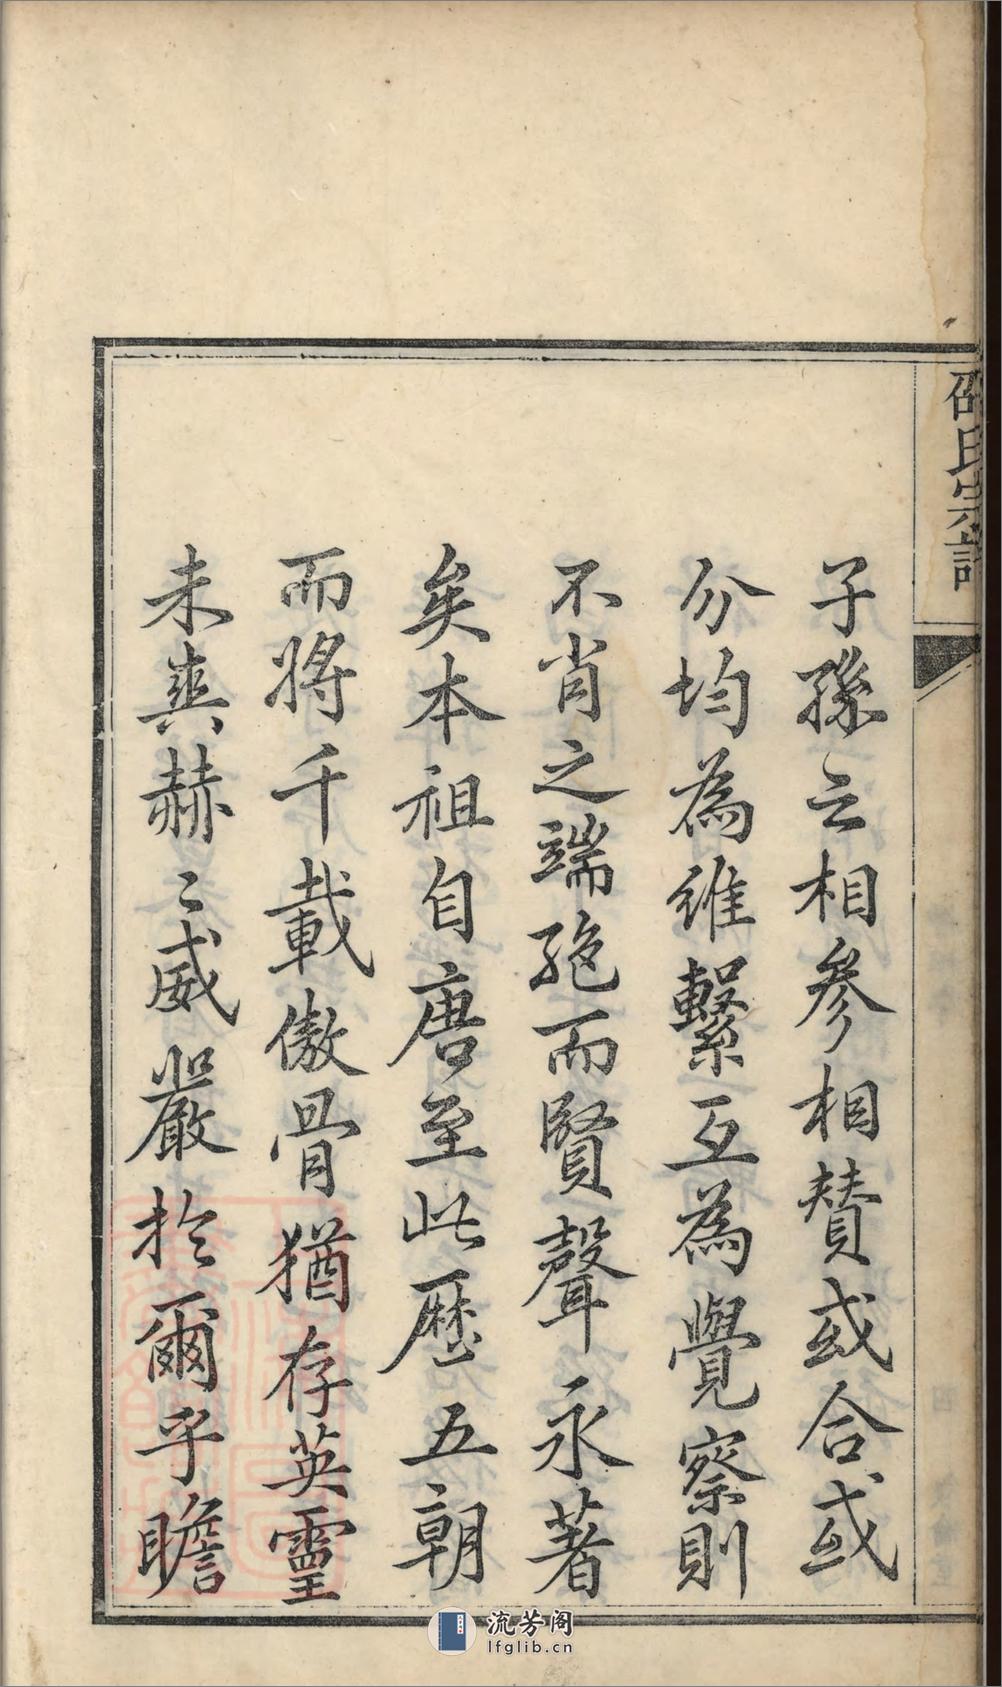 邵氏宗譜
子孫云相參相贊或合或
分均為維繫互為覺察則
不肖之端絕而賢聲永著
矣本祖自唐至此歷五朝
而將千載傲骨猶存英靈
未爽赫〻威嚴於爾乎瞻
流芳阁
lfglib.cn